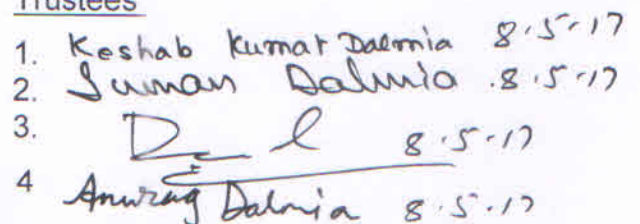 Trustees
1. Keshab Kumar Dalmia 8.5.17
2. Suman Dalmia .8.5.17
3. 8.5.17
4 Anurag Dalmia 8.5.17